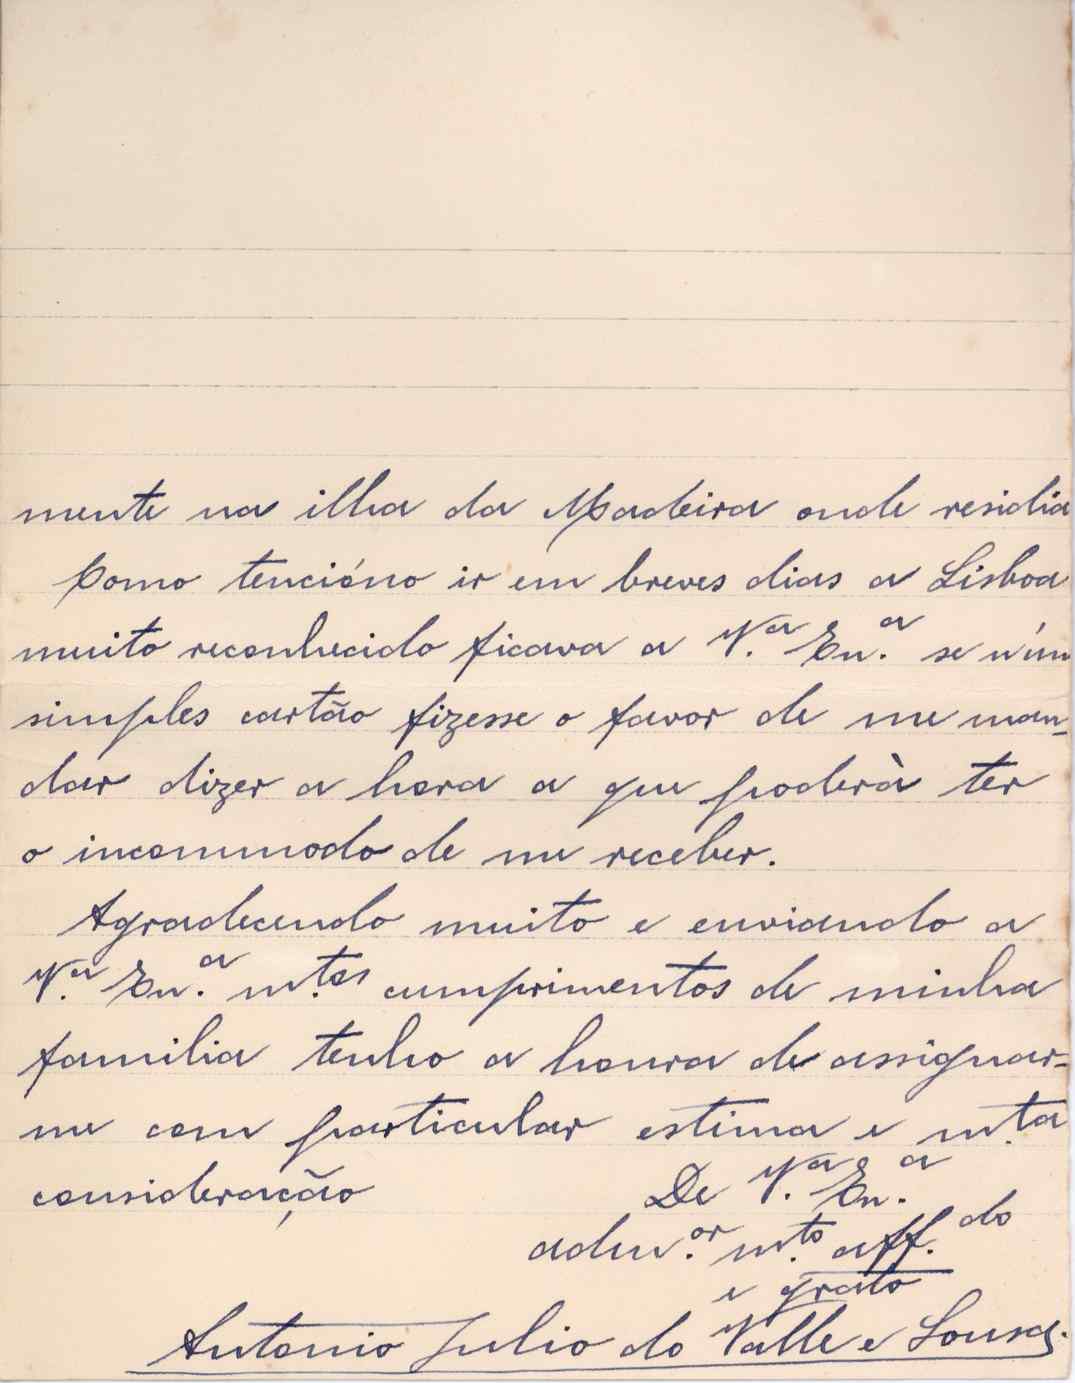 mente na ilha da Madeira onde residia
Como tencióno ir em breves dias a Lisboa
muito reconhecido ficava a V.ª Ex.ª se n'um
simples cartão fizesse o favor de me man-
dar dizer a hora a que poderà ter
o incommodo de me receber.
Agradecendo muito e enviando a
V.ª Ex.ª m.tos cumprimentos de minha
familia tenho a honra de assignar-
me com particular estima e m.ta
consideração
De V.ª Ex.ª
adm.or m.to aff.do
e grato
Antonio Julio do Valle e Sousa.